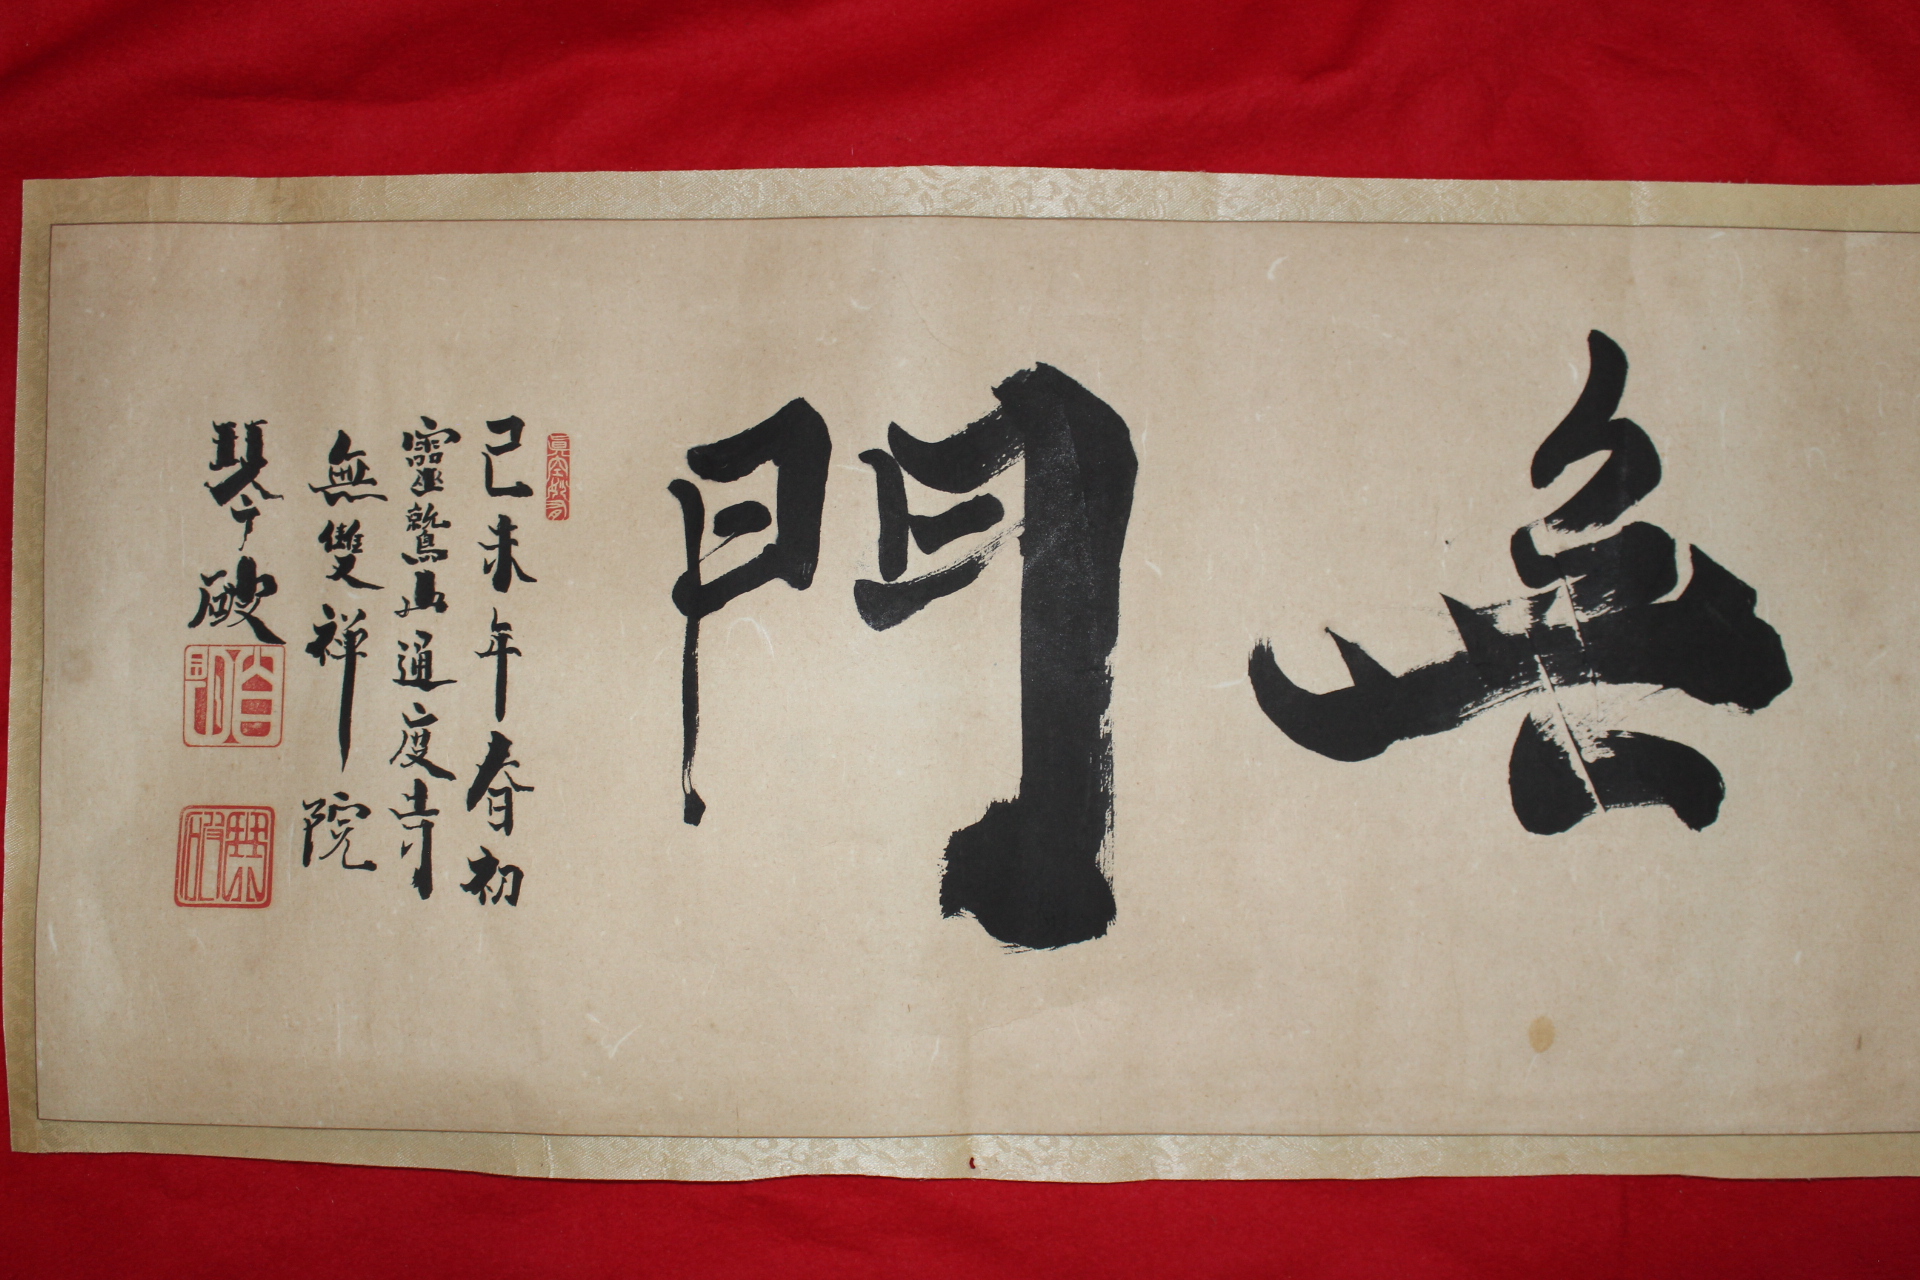 無門
己未年春初
靈鷲山通度寺
無雙禅院